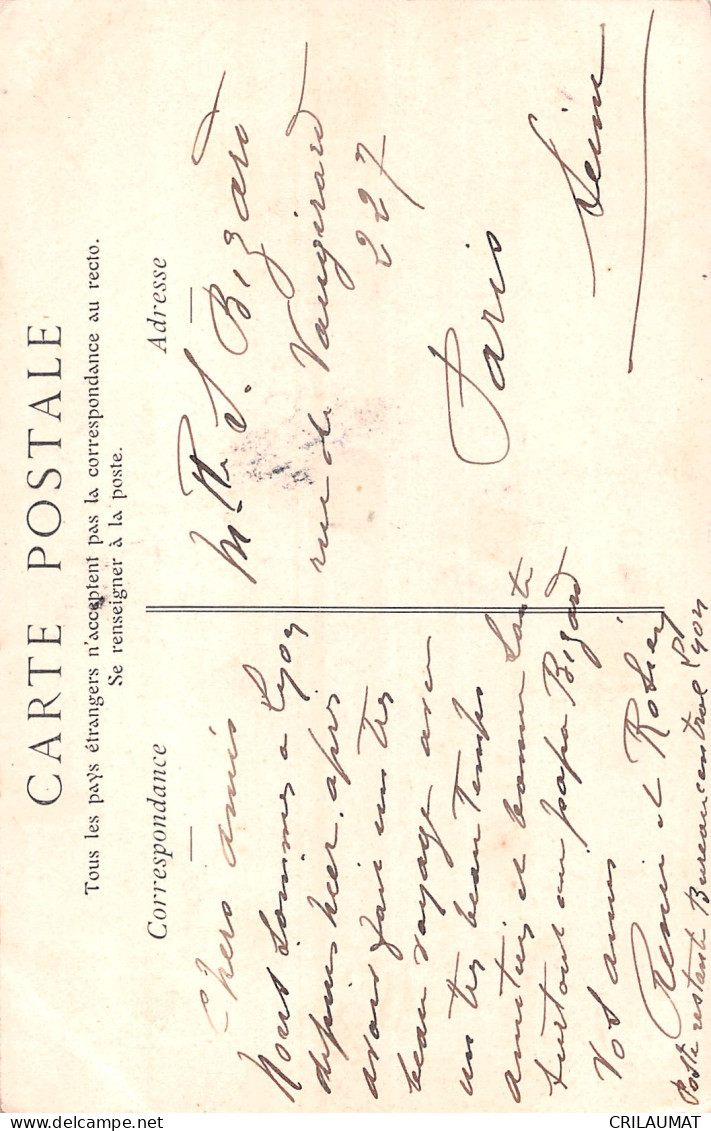 CARTE POSTALE
Tous les pays étrangers n'acceptent pas la correspondance au recto.
Se renseigner à la poste.
Correspondance
Chers amis
Nous sommes a Lyon
depuis hier, apres
avoir fait un tres
beau voyage avec
un tres beau temps
amities et bonne sante
surtout au papa Bizard
Vos amis
Remi et Robert
Poste restante Bureau central Lyon
Adresse
S. Bizard
rue de Vaugirard
227
Paris
Seine
CRILAUMAT